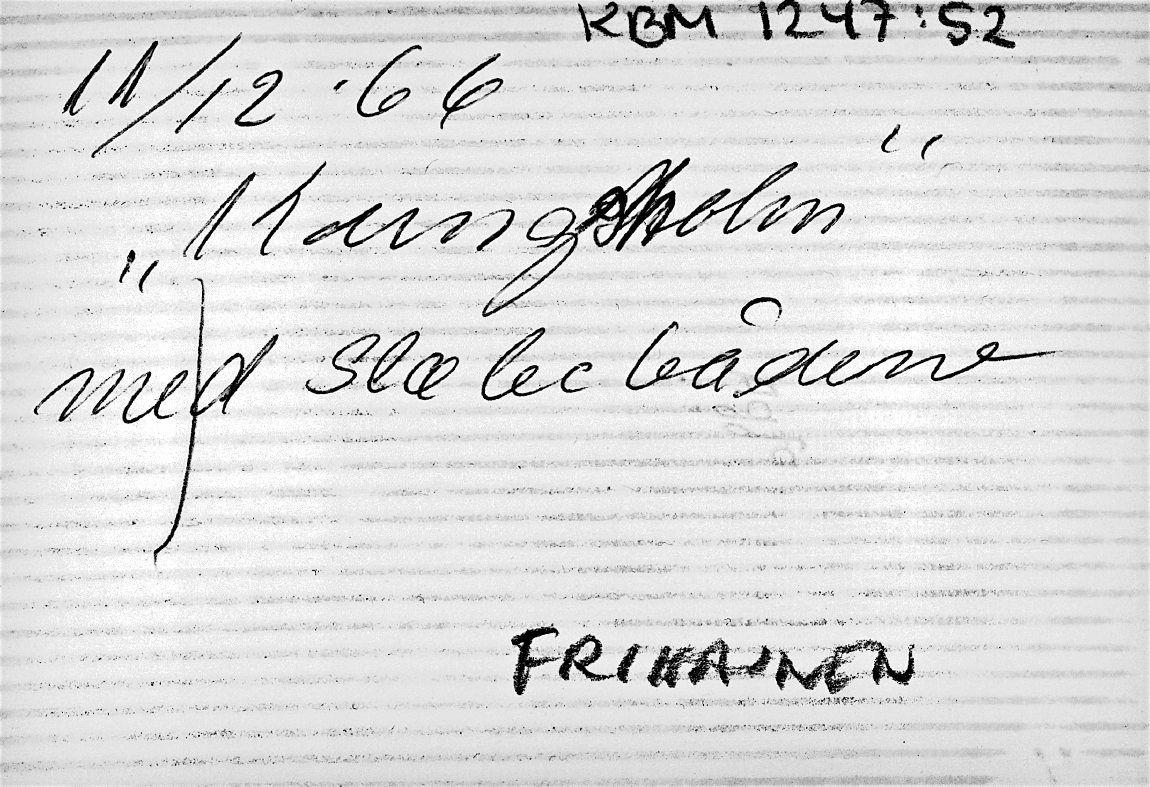 KBM 1247:52
11/12.66
"Kungsholm"
med slæbebådene
FRIHAVNEN